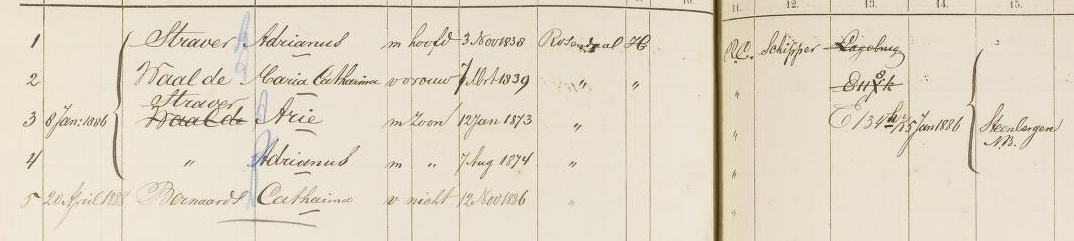 10. 11. 12. 13. 14. 15.
1 Straver Adrianus m hoofd 3 Nov 1838 Rosendaal H R.C. Schipper Lagebrug
2 Waal de Maria Catharina v vrouw 7 1839 " " "
Straver
3 8 Jan: 1886 Waal de Arie m Zoon 12 Jan 1873 " " E 134 15 Jan 1886 Steenbergen
N.B.
4 " Adrianus m " 7 Aug 1874 " "
5 20 April 1888 Bernaards Catharina v nicht 12 Nov 1886 " "